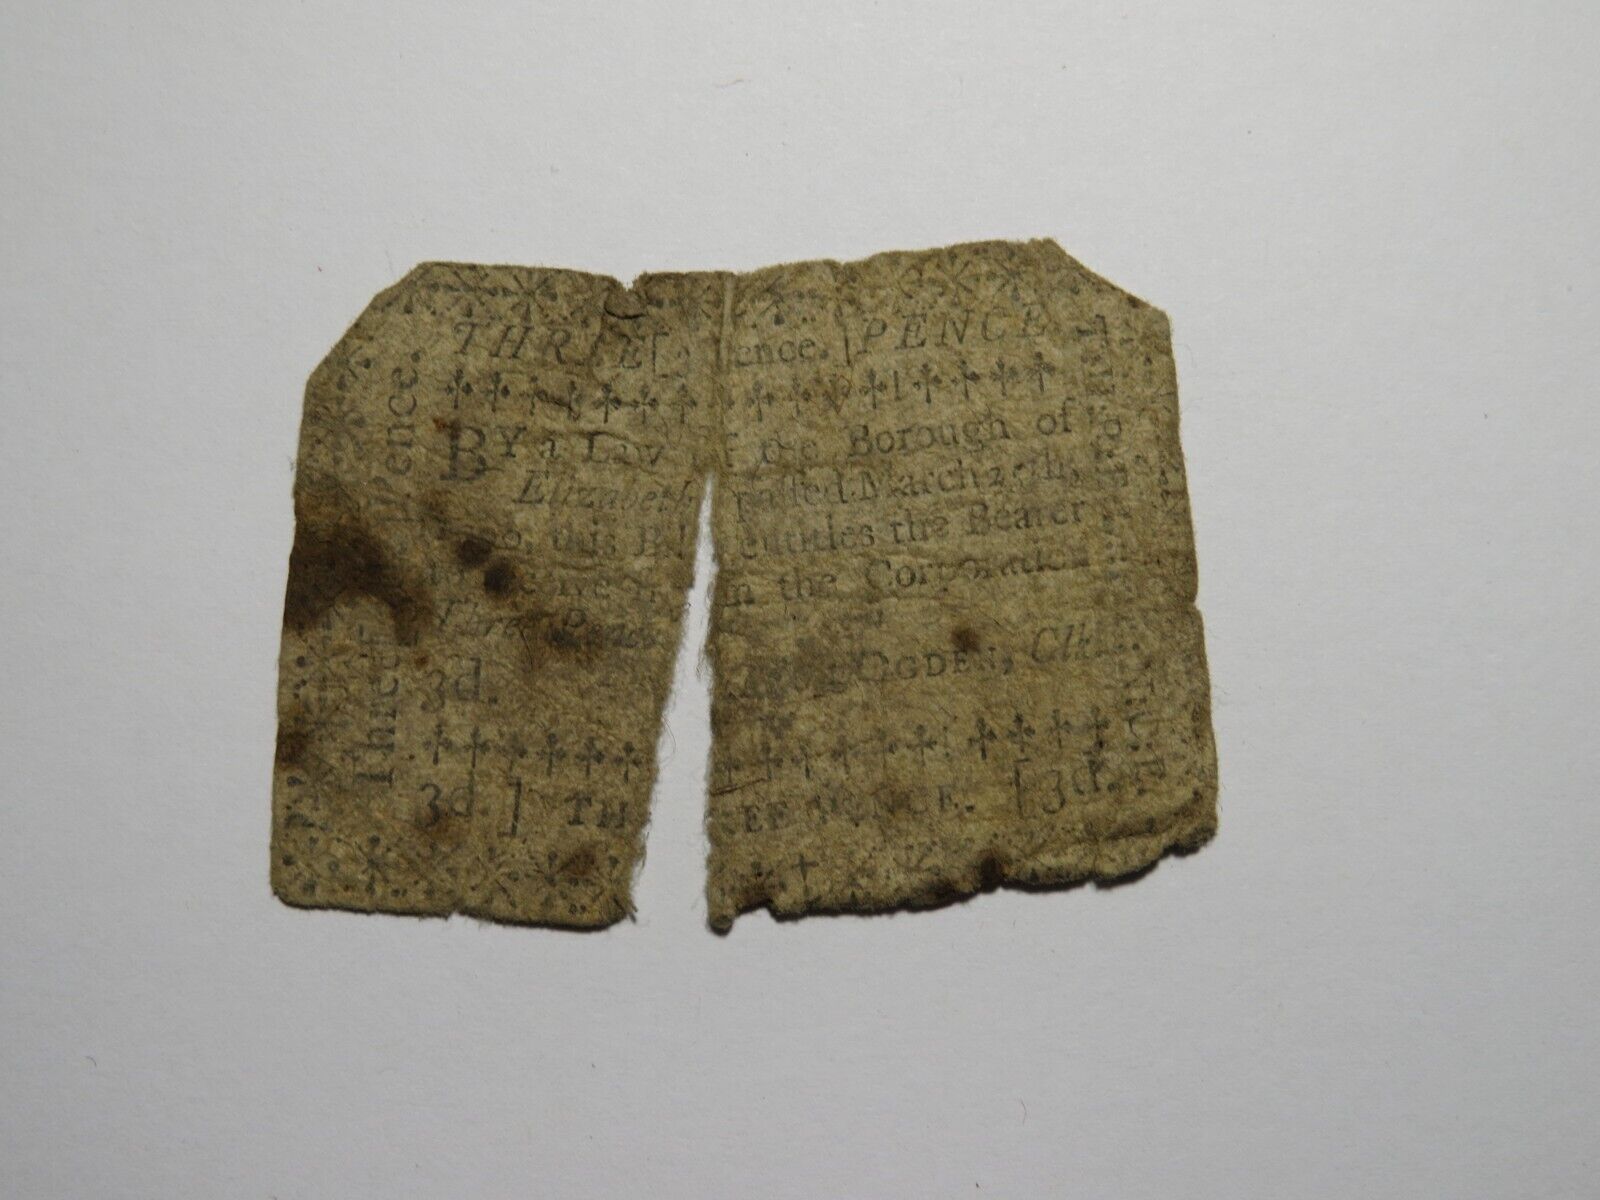 THREE [3 Pence.] PENCE
BY a Law of the Borough of
Elizabeth passed March
this Bill entitles the Bearer
to receive from the Corporation
Three Pence
3d. OGDEN, Clk.
3d.] THREE PENCE. [3d.
Three Pence.